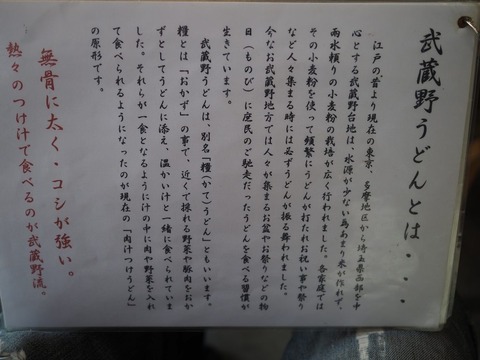 武蔵野うどんとは・・・
江戸の昔より現在の東京、多摩地区から埼玉県西部を中
心とする武蔵野台地は、水源が少ない為あまり米が作れず、
雨水頼りの小麦粉の栽培が広く行われました。各家庭では
その小麦粉を使って頻繁にうどんが打たれお祝い事や祭り
など人々集まる時には必ずうどんが振る舞われました。
今なお武蔵野地方では人々が集まるお盆やお祭りなどの物
日（ものび）に庶民のご馳走だったうどんを食べる習慣が
生きています。
武蔵野うどんは、別名「糧（かて）うどん」ともいいます。
糧とは「おかず」の事で、近くで採れる野菜や豚肉をおか
ずとしてうどんに添え、温かい汁と一緒に食べられていま
した。それらが一食となるように汁の中に肉や野菜を入れ
て食べられるようになったのが現在の「肉汁つけうどん」
の原形です。
無骨に太く・コシが強い。
熱々のつけ汁で食べるのが武蔵野流。